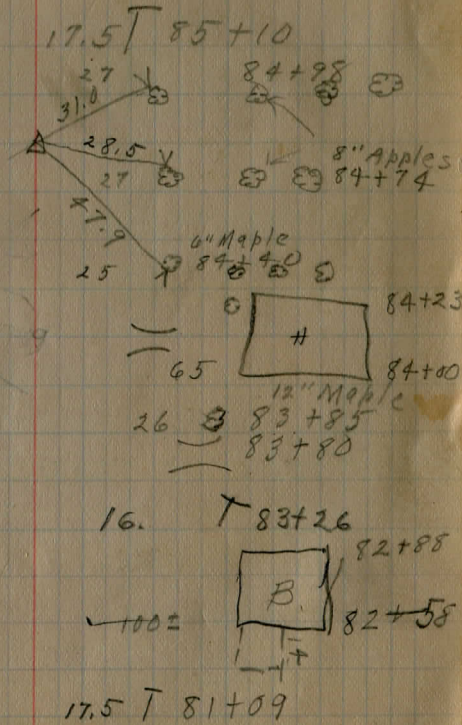 17.5 T 85+10
27 84+98
31.0
28.5 8" Apples
27 84+74
47.9
6" Maple
25 84+40
84+23
H
65 84+00
12" Maple
26 83+85
83+80
16. T 83+26
82+88
B.
100± 82+58
17.5 T 81+09